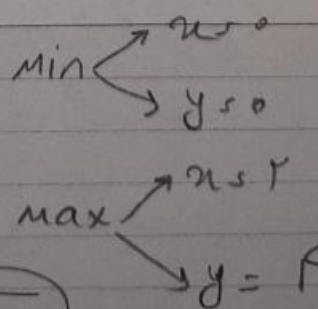 Min
x = 0
y = 0
Max
x = 2
y =